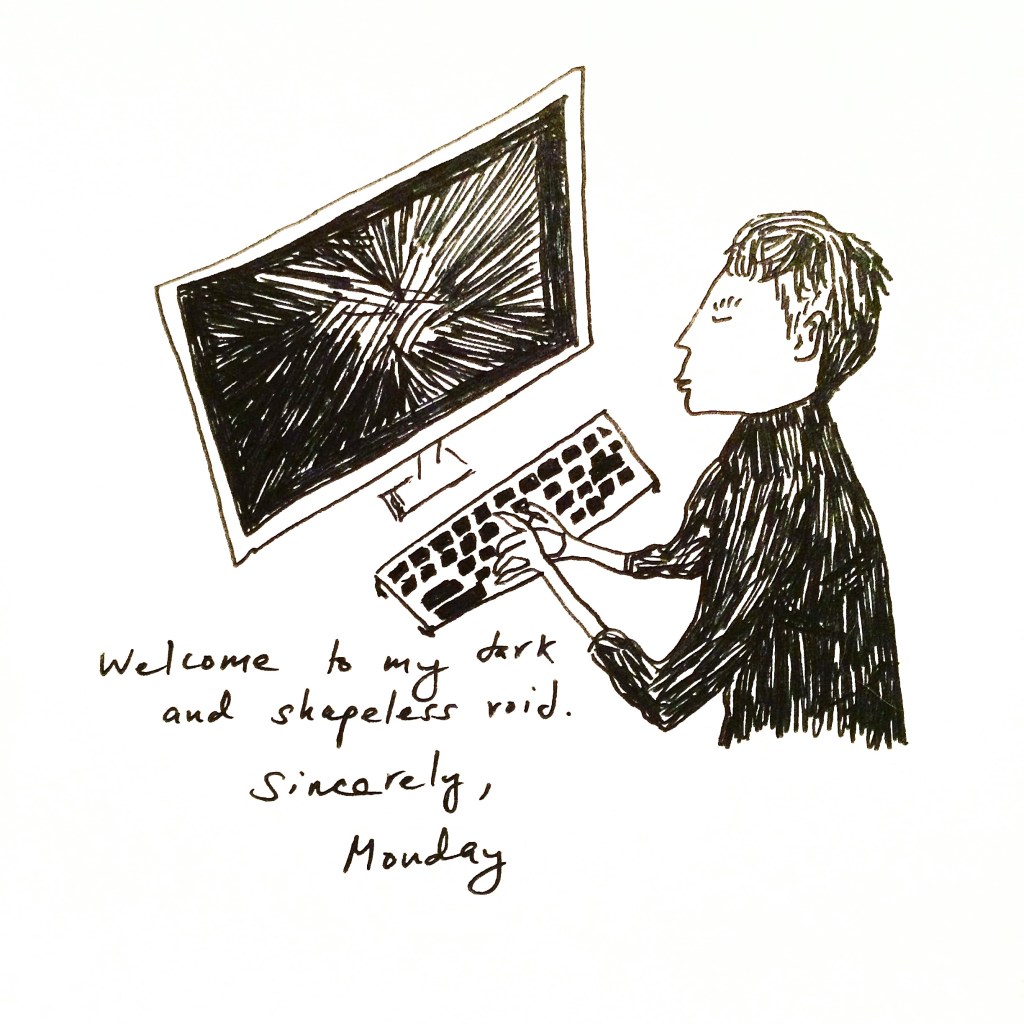 Welcome to my dark
and shapeless void.
Sincerely,
Monday